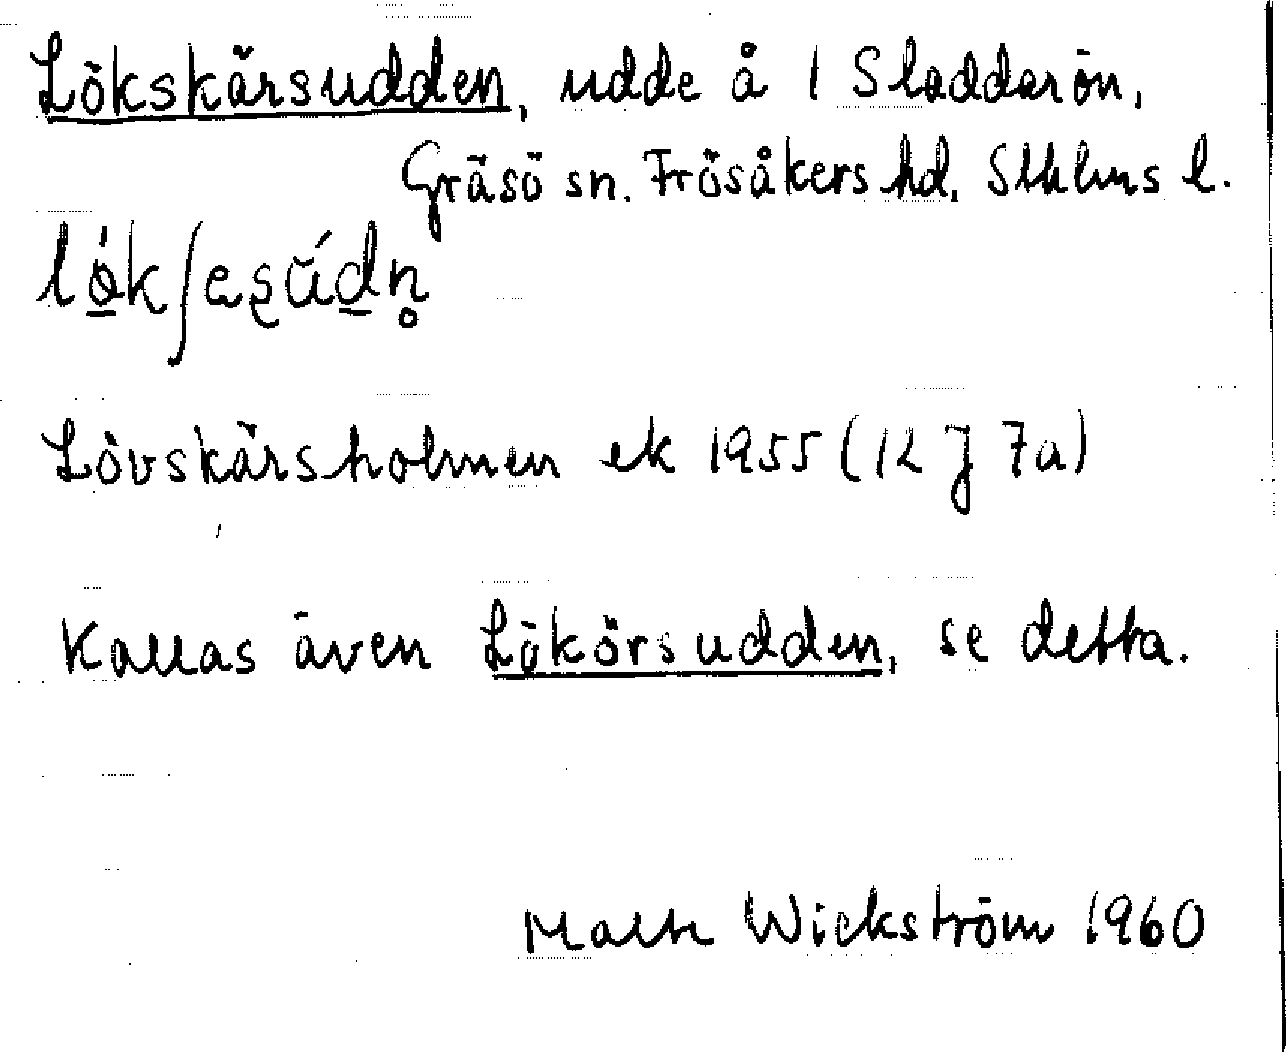 Lökskärsudden, udde å 1 Sladdarön,
Gräsö sn. Frösåkers hd. Sthlms l.
Lövskärsholmen ek 1955 (12 J 7a)
Kallas även Lökörsudden, se detta.
Malte Wickström 1960